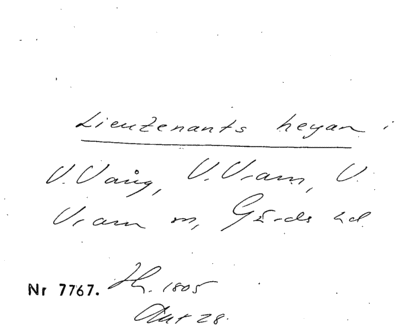 Lieutenants heyan i
V. Vång, V. Vram, V.
Vram m, Gärds hd
Nr 7767. Jh. 1805
Akt 28.